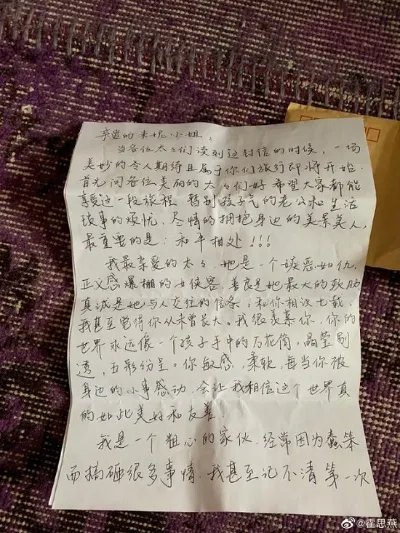 亲爱的 小姐:
当各位太太们读到这封信的时候,一场
美妙的令人期待且属于你们旅行即将开始.
首先问各位美丽的太太们好 希望大家都能
享受这一段旅程 暂别孩子气的老公和生活
琐事的烦忧,尽情的拥抱身边的美景美人,
最重要的是:和平相处!!!
我最亲爱的太太,她是一个嫉恶如仇,
正义感爆棚的女侠客,善良是她最大的软肋
真诚是她与人交往的信条,和你相识七载,
我甚至觉得你从未曾长大。我很羡慕你,你的
世界永远像一个孩子手中的万花筒,晶莹剔
透,五彩纷呈。你敏感,柔软,每当你被
身边的小事感动,会让我相信这个世界真
的如此美好和友善.
我是一个粗心的家伙,经常因为蠢笨
而搞砸很多事情,我甚至记不清第一次
@霍思燕